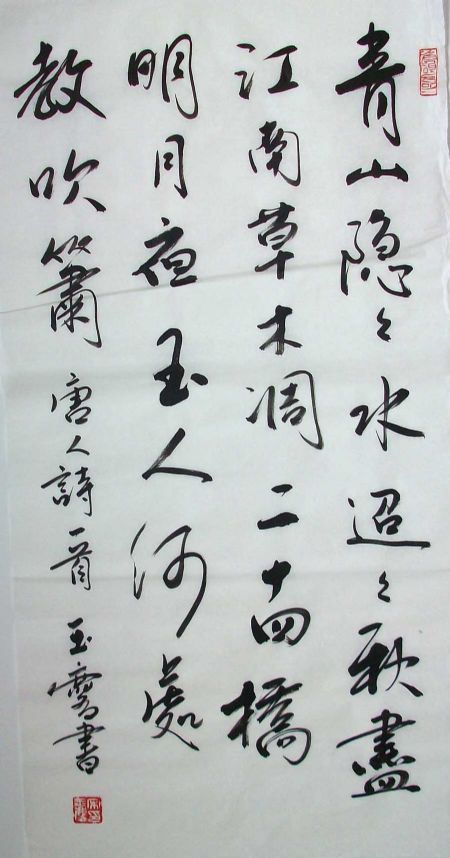 青山隐々水迢々秋盡
江南草木凋二十四橋
明月夜玉人何處
教吹簫唐人詩一首玉齋書